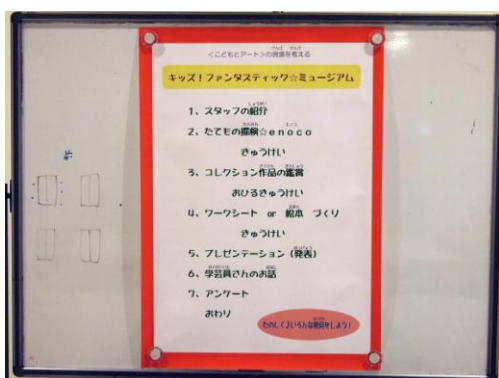 ＜こどもとアート＞の関係を考える
キッズ！ファンタスティック☆ミュージアム
1、スタッフの紹介
2、たてもの探検☆enoco
きゅうけい
3、コレクション作品の鑑賞
おひるきゅうけい
4、ワークシート or 絵本 づくり
きゅうけい
5、プレゼンテーション（発表）
6、学芸員さんのお話
7、アンケート
おわり
たのしくいろんな発見をしよう！